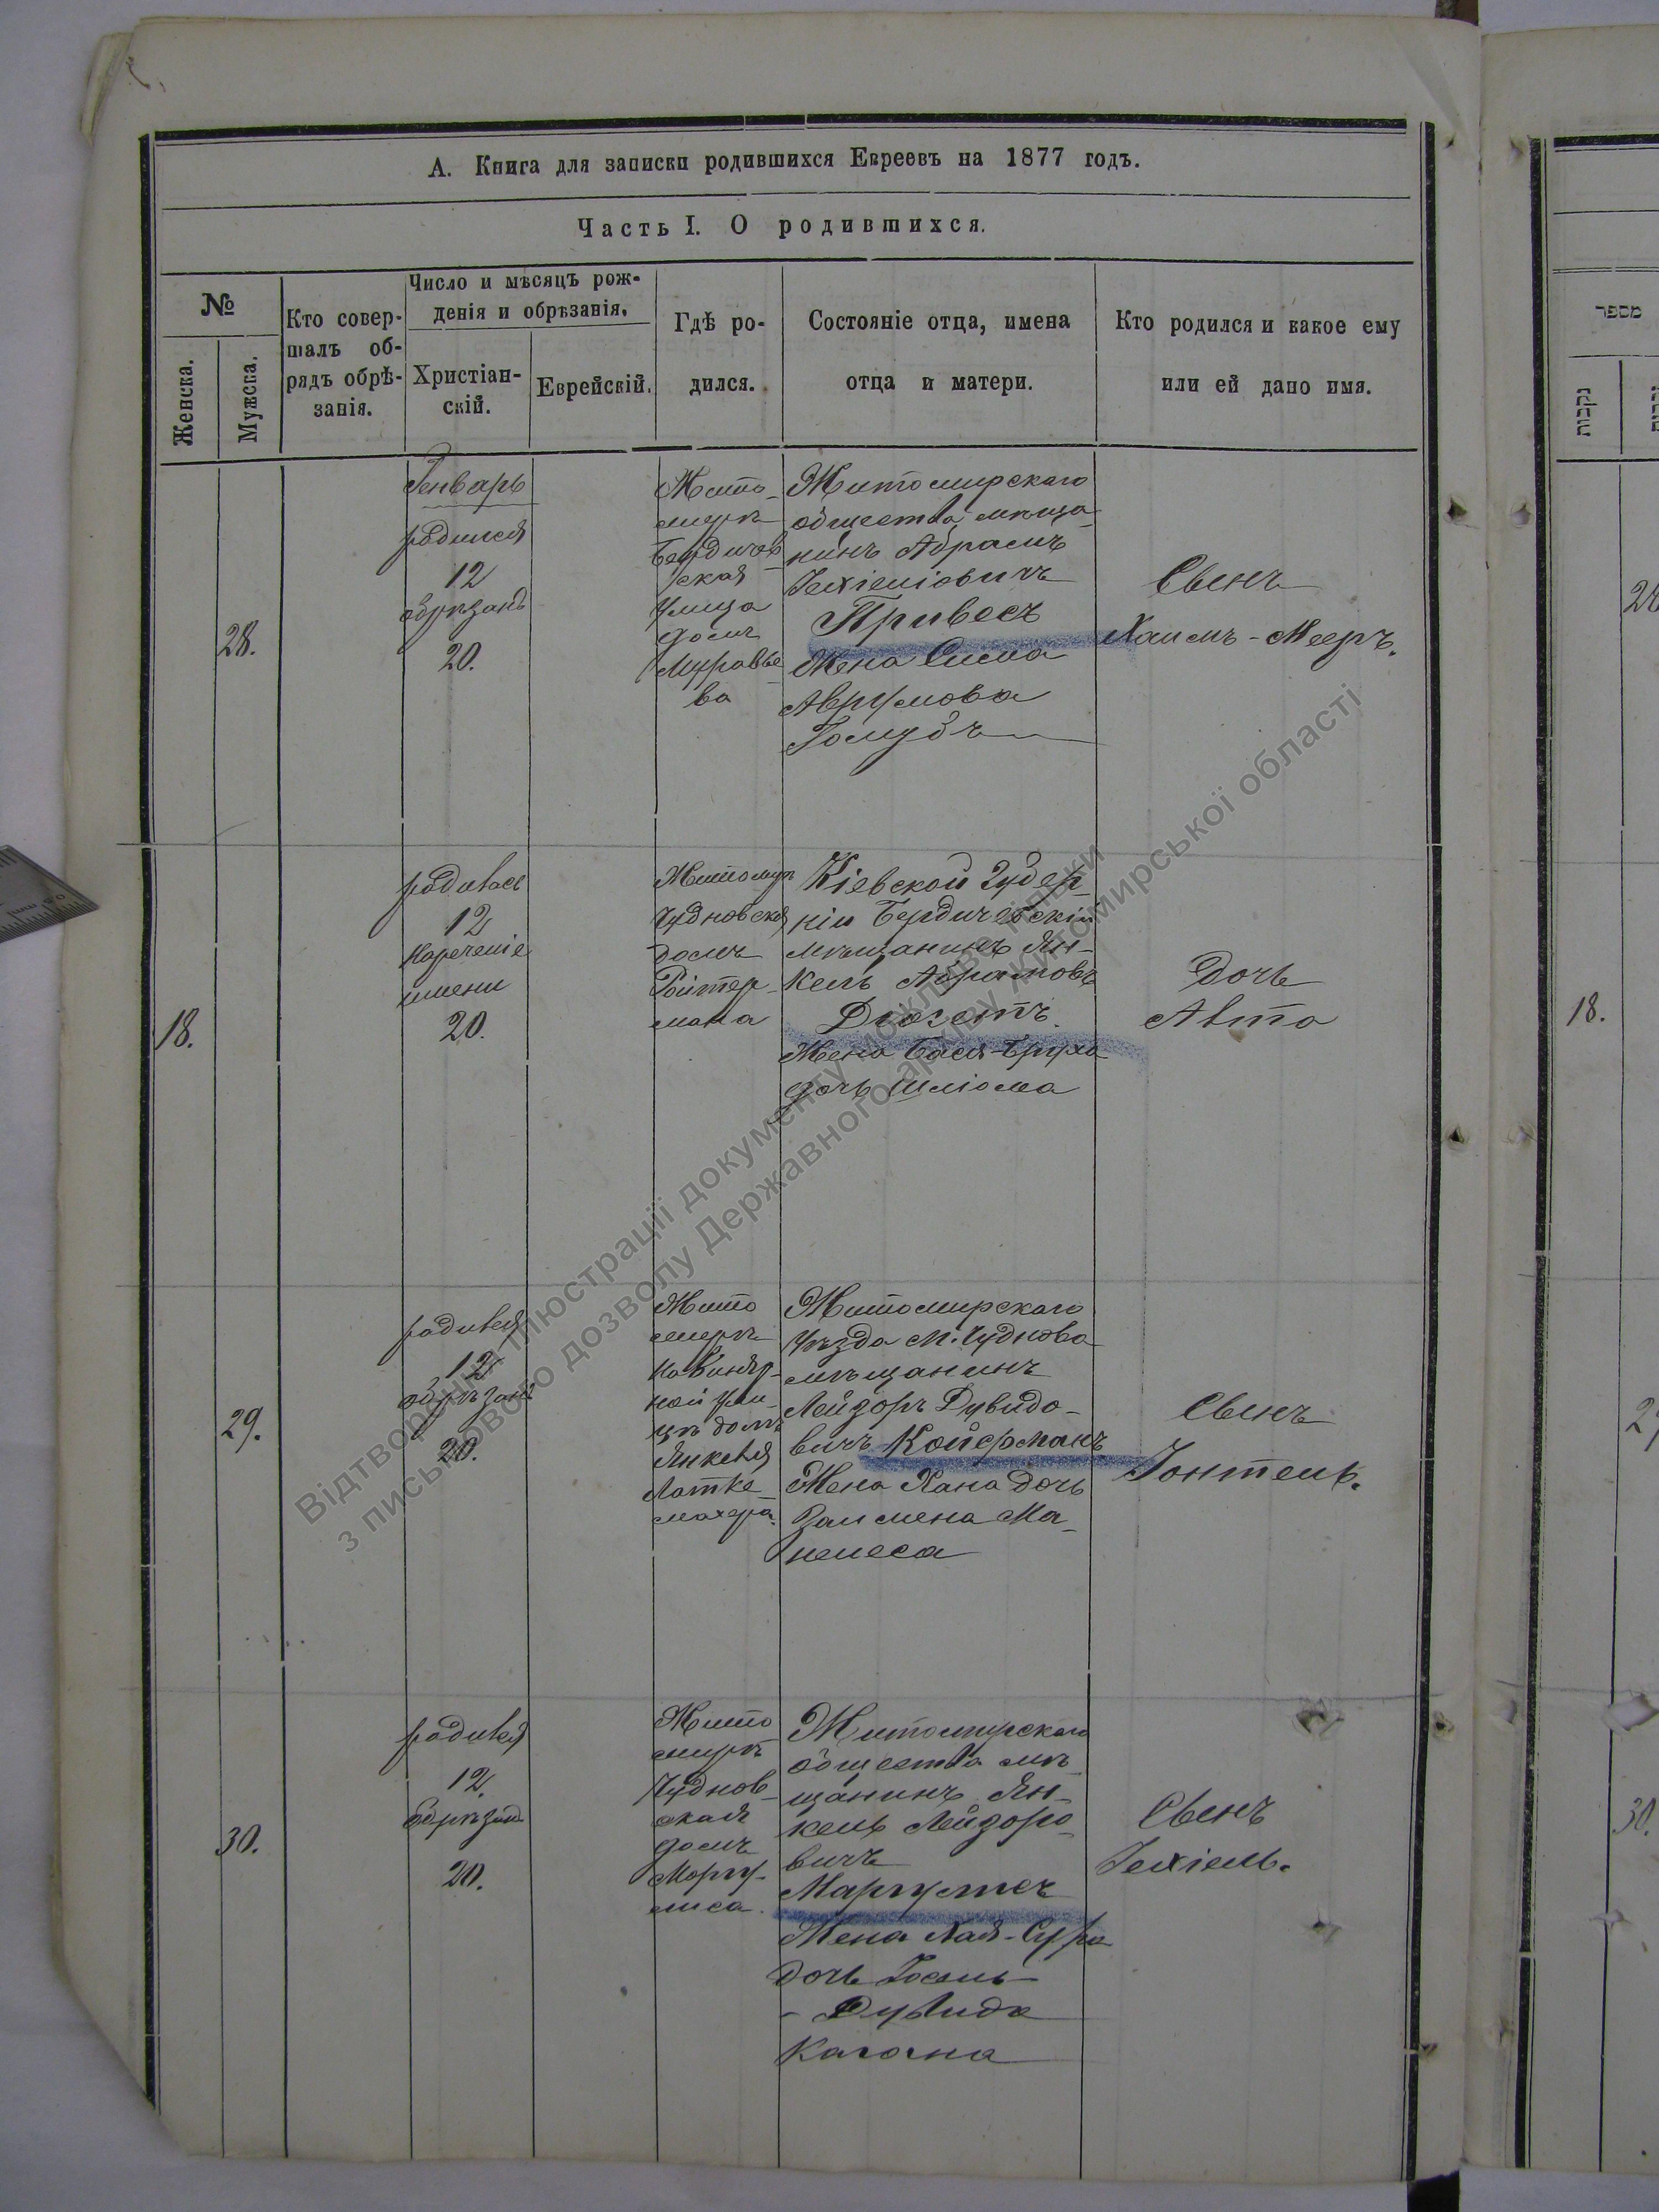 А. Книга для записки родившихся Евреевъ на 1877 годъ.
Часть I. О родившихся.
№
Женска.
Мужска.
Кто совер-
шалъ об-
рядъ обрѣ-
занія.
Число и мѣсяцъ рож-
денія и обрѣзанія.
Христіан-
скій.
Еврейскій.
Гдѣ ро-
дился.
Состояніе отца, имена
отца и матери.
Кто родился и какое ему
или ей дано имя.
28.
Генварь
родился
12
обрѣзанъ
20.
Жито-
миръ
Бердичев
ская
улица
домъ
Муравье-
ва
Житомирскаго
общества мѣща-
нинъ Абрамъ
Іехіеліовичъ
Привесъ
Жена Сима
Аврумова
Голубъ
Сынъ
Хаимъ-Мееръ.
18.
родилась
12
Нареченіе
имени
20.
Житомиръ
Чудновская
домъ
Ройтер-
мана
Кіевской Губер-
ніи Бердичевскій
мѣщанинъ Ян-
кель Абрамовъ
Жена Бася-Бруха
дочь Шліома
Дочь
29.
родился
12
обрѣзанъ
20.
Жито
миръ
ной ули-
цѣ домъ
Янкеля
Латке-
махера.
Житомирскаго
Уѣзда м. Чуднова
мѣщанинъ
Лейзоръ Дувидо-
вичъ Койферманъ
Жена Хана дочь
Залмена Ма-
Сынъ
Іонтель.
30.
родился
12.
обрѣзанъ
20.
Жито
миръ
Чуднов-
ская
домъ
Маргу-
лиса.
Житомирскаго
общества мѣ-
щанинъ Ян-
кель Лейзоро-
вичъ
Жена Хая-Сура
дочь Іосель-
-Дувида
Кагана
Сынъ
Іехіель.
מספר
נקבות
28
18.
29
30.
Відтворення ілюстрації документу можливо тільки
з письмового дозволу Державного архіву Житомирської області